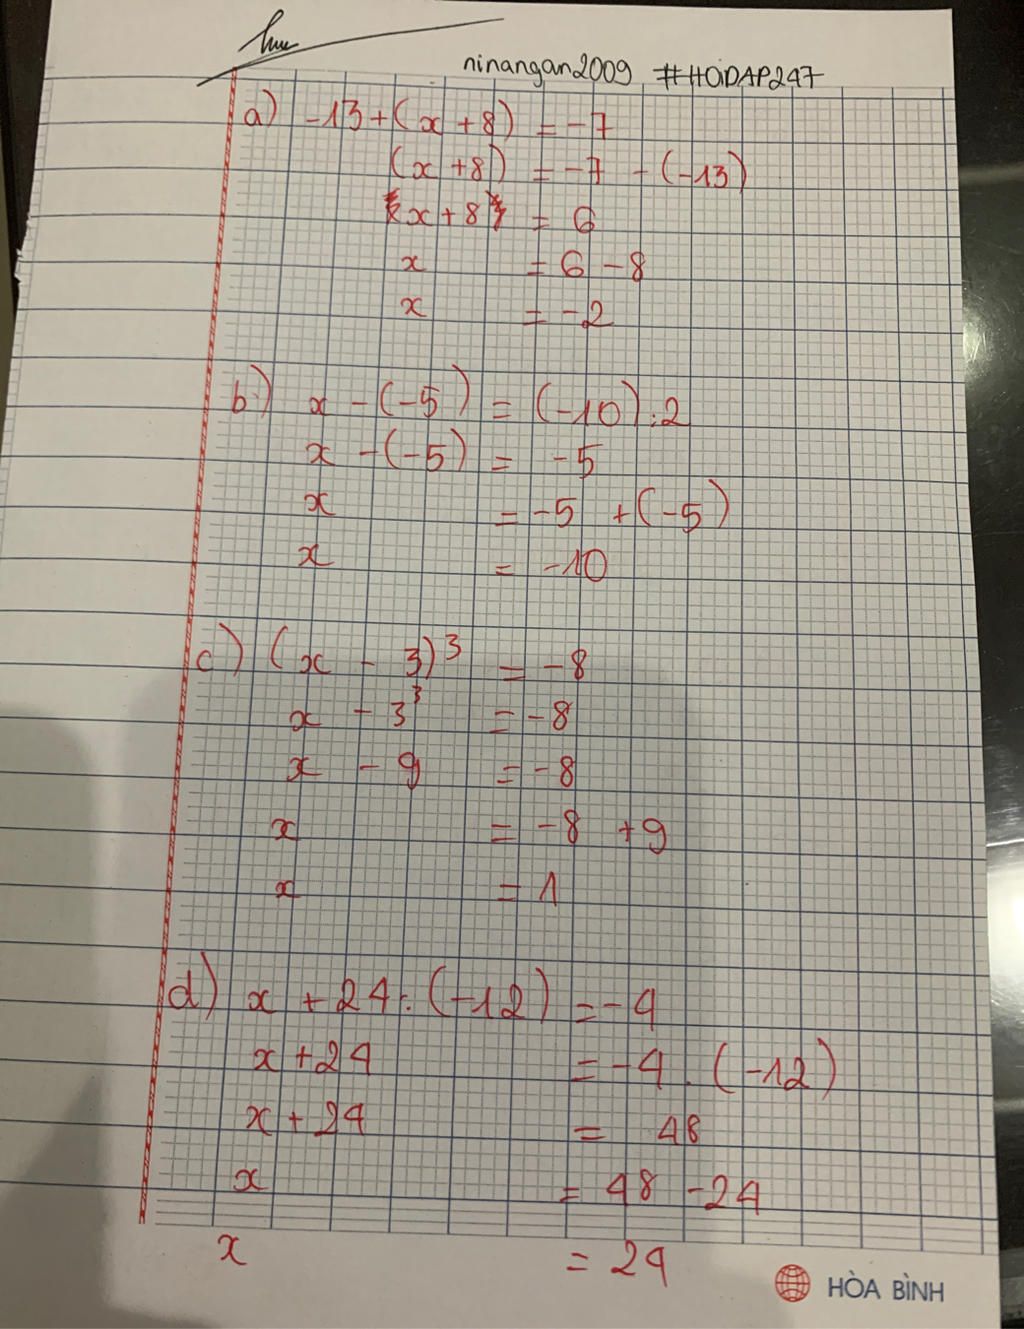 ninangan2009 #HOIDAP247
a) -13+(x+8) = -7
(x+8) = -7 - (-13)
x+8 = 6
x = 6 -8
x = -2
b) x -(-5) = (-10):2
x -(-5) = -5
x = -5 +(-5)
x = -10
c) (x - 3)³ = -8
x - 3³ = -8
x - 9 = -8
x = -8 +9
x = 1
d) x +24:(-12) = -4
x +24 = -4.(-12)
x + 24 = 48
x = 48 -24
x = 24
HÒA BÌNH